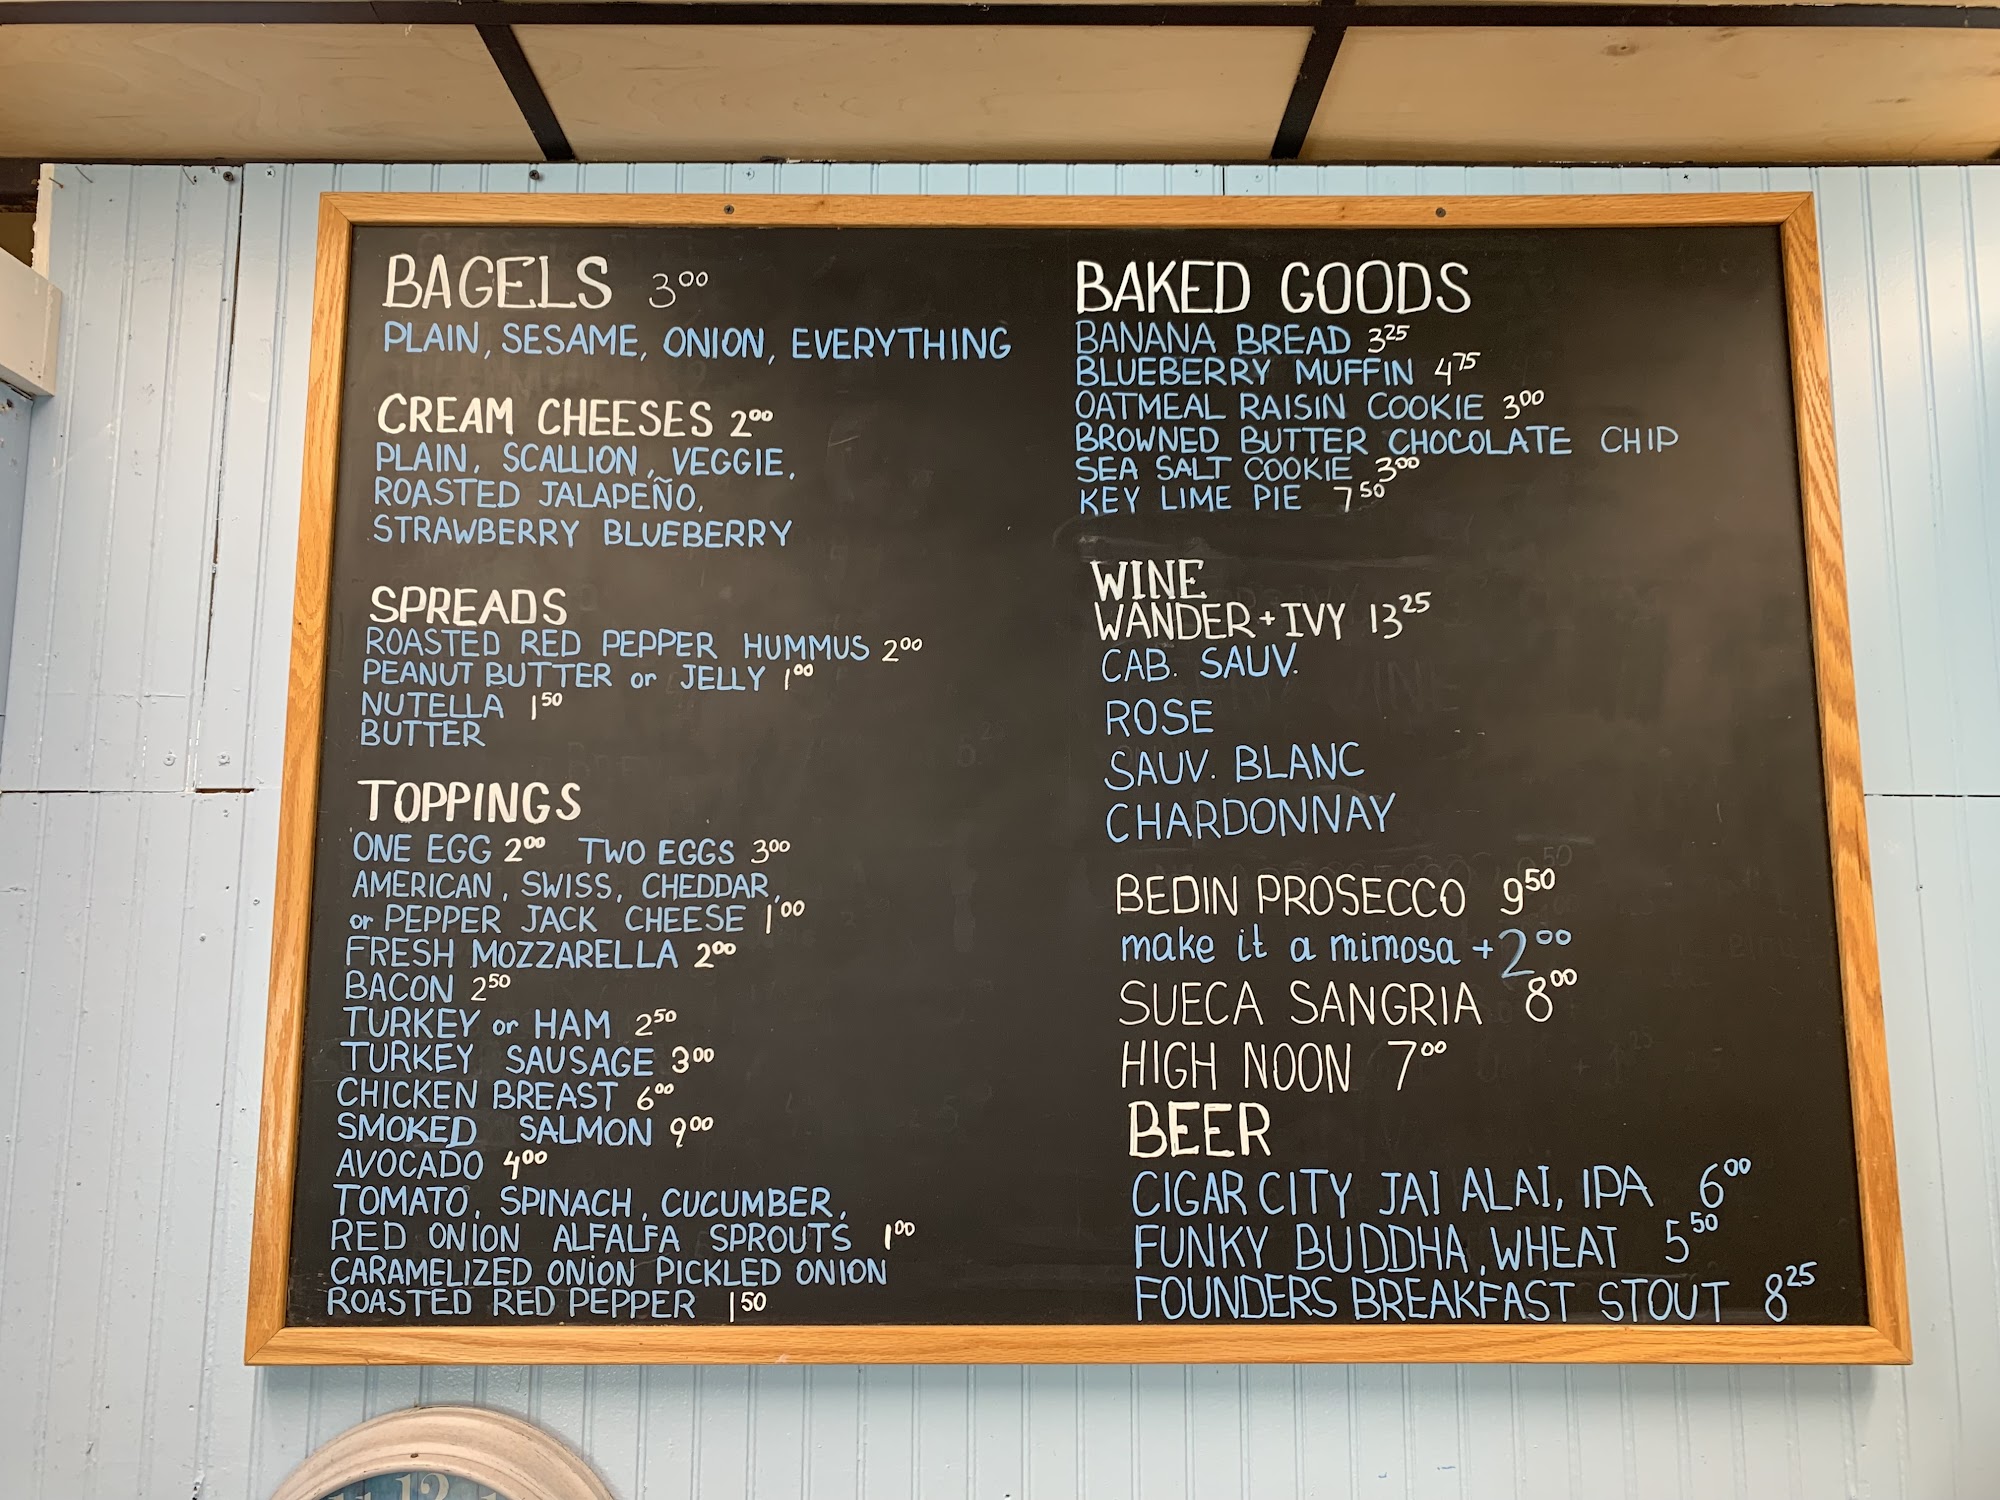 BAGELS 3.00
PLAIN, SESAME, ONION, EVERYTHING
CREAM CHEESES 2.00
PLAIN, SCALLION, VEGGIE,
ROASTED JALAPEÑO,
STRAWBERRY BLUEBERRY
SPREADS
ROASTED RED PEPPER HUMMUS 2.00
PEANUT BUTTER or JELLY 1.00
NUTELLA 1.50
BUTTER
TOPPINGS
ONE EGG 2.00 TWO EGGS 3.00
AMERICAN, SWISS, CHEDDAR,
or PEPPER JACK CHEESE 1.00
FRESH MOZZARELLA 2.00
BACON 2.50
TURKEY or HAM 2.50
TURKEY SAUSAGE 3.00
CHICKEN BREAST 6.00
SMOKED SALMON 9.00
AVOCADO 4.00
TOMATO, SPINACH, CUCUMBER,
RED ONION ALFALFA SPROUTS 1.00
CARAMELIZED ONION PICKLED ONION
ROASTED RED PEPPER 1.50
BAKED GOODS
BANANA BREAD 3.25
BLUEBERRY MUFFIN 4.75
OATMEAL RAISIN COOKIE 3.00
BROWNED BUTTER CHOCOLATE CHIP
SEA SALT COOKIE 3.00
KEY LIME PIE 7.50
WINE
WANDER + IVY 13.25
CAB. SAUV.
ROSE
SAUV. BLANC
CHARDONNAY
BEDIN PROSECCO 9.50
make it a mimosa +2.00
SUECA SANGRIA 8.00
HIGH NOON 7.00
BEER
CIGAR CITY JAI ALAI, IPA 6.00
FUNKY BUDDHA, WHEAT 5.50
FOUNDERS BREAKFAST STOUT 8.25
12